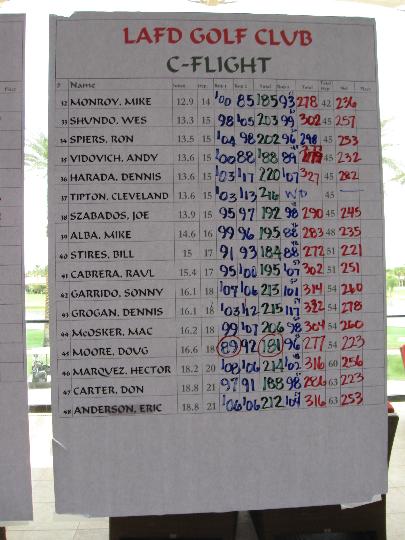 LAFD GOLF CLUB
C-FLIGHT
# Name Total Net Place
32 MONROY, MIKE 12.9 14 100 85 185 93 278 42 236
33 SHUNDO, WES 13.3 15 98 105 203 99 302 45 257
34 SPIERS, RON 13.5 15 104 98 202 96 298 45 253
35 VIDOVICH, ANDY 13.6 15 100 88 188 89 45 232
36 HARADA, DENNIS 13.6 15 103 117 220 107 327 45 282
37 TIPTON, CLEVELAND 13.6 15 103 113 216 WD 45
38 SZABADOS, JOE 13.9 15 95 97 192 98 290 45 245
39 ALBA, MIKE 14.6 16 99 96 195 88 283 48 235
40 STIRES, BILL 15 17 91 93 184 88 272 51 221
41 CABRERA, RAUL 15.4 17 95 100 195 107 302 51 251
42 GARRIDO, SONNY 16.1 18 107 106 213 101 314 54 260
43 GROGAN, DENNIS 16.1 18 103 112 215 117 332 54 278
44 McOSKER, MAC 16.2 18 99 107 206 98 304 54 260
45 MOORE, DOUG 16.6 18 89 92 181 96 277 54 223
46 MARQUEZ, HECTOR 18.2 20 108 106 214 102 316 60 256
47 CARTER, DON 18.8 21 97 91 188 98 286 63 223
48 ANDERSON, ERIC 18.8 21 106 106 212 104 316 63 253